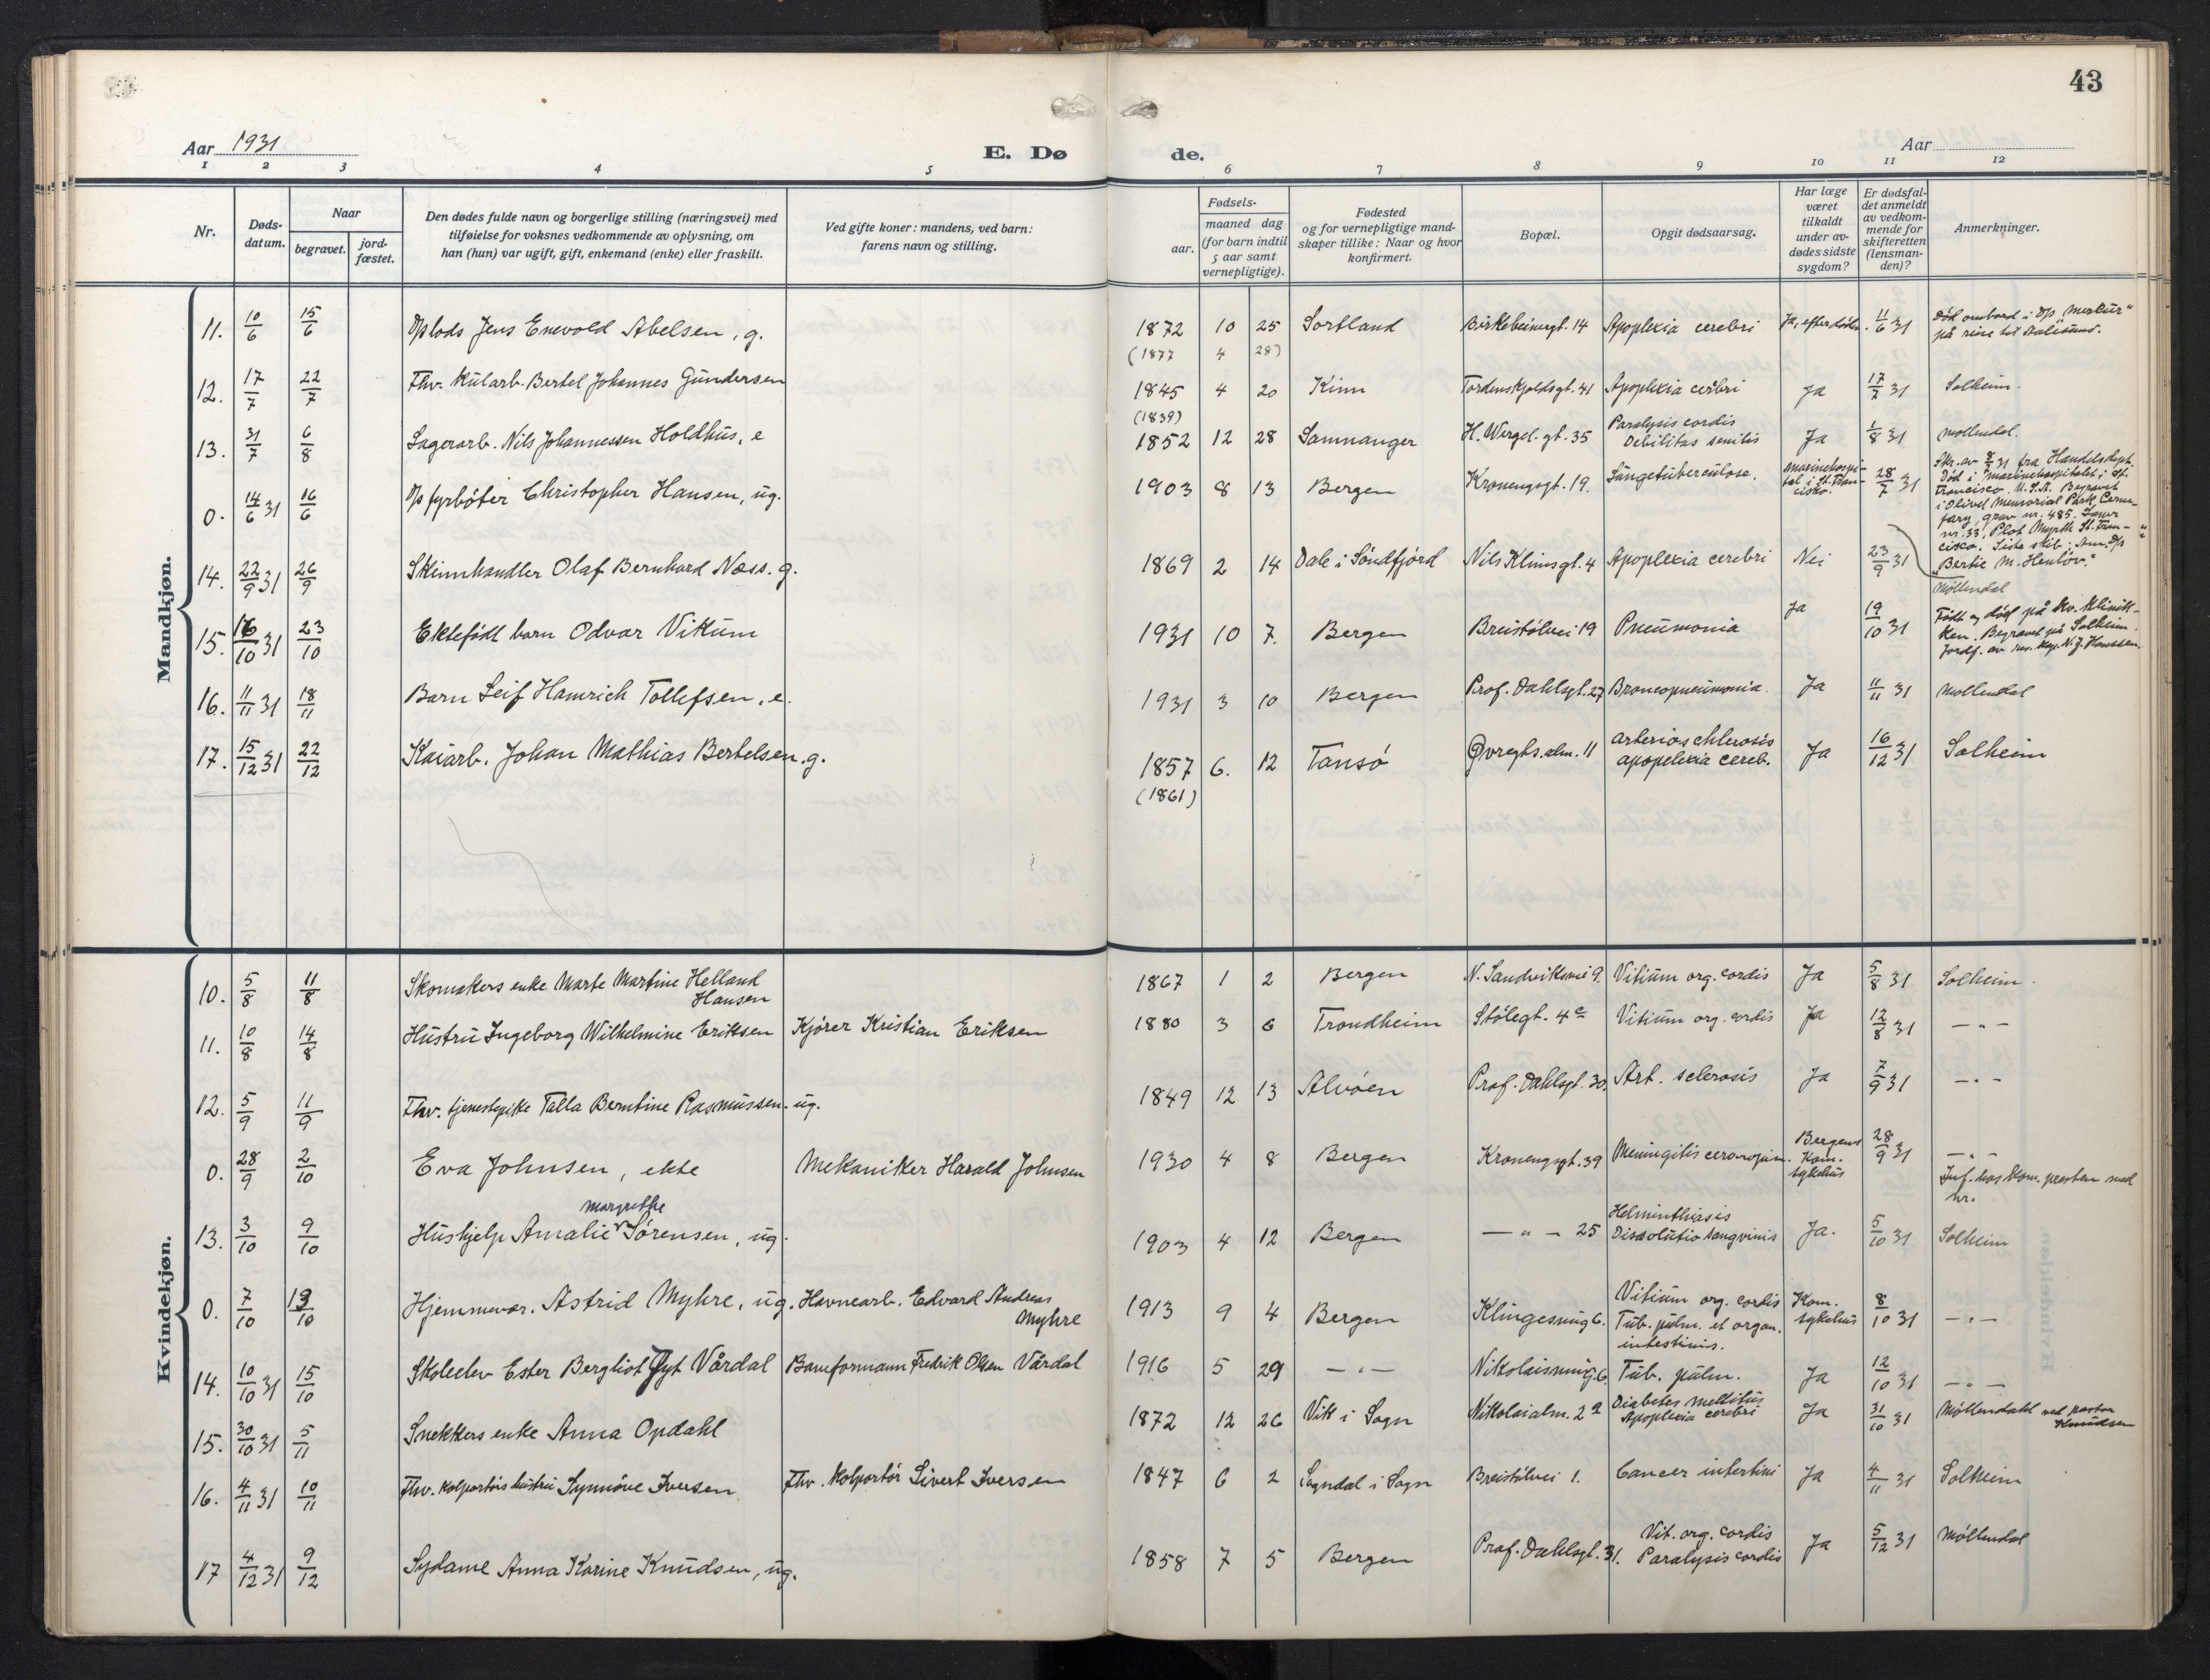 43
Aar 1931
E. Dø
de.
Aar
1 2 3 4 5 6 7 8 9 10 11 12
Nr.
Døds-
datum.
Naar
begravet.
jord-
fæstet.
Den dødes fulde navn og borgerlige stilling (næringsvei) med
tilføielse for voksnes vedkommende av oplysning, om
han (hun) var ugift, gift, enkemand (enke) eller fraskilt.
Ved gifte koner: mandens, ved barn:
farens navn og stilling.
Fødsels-
aar.
maaned dag
(for barn indtil
5 aar samt
vernepligtige).
Fødested
og for vernepligtige mand-
skaper tillike: Naar og hvor
konfirmert.
Bopæl.
Opgit dødsaarsag.
Har læge
været
tilkaldt
under av-
dødes sidste
sygdom?
Er dødsfal-
det anmeldt
av vedkom-
mende for
skifteretten
(lensman-
den)?
Anmerkninger.
Mandkjøn.
11. 10/6 15/6 D/plods Jens Enevold Abelsen, g. 1872 10 25 Sortland Birkebeinergt. 14 Apoplexia cerebri Ja, efter døden. 11/6 31 Død ombord i D/s „Merkur"
på reise til Aalesund.
(1877 4 28)
12. 17/7 22/7 Fhv. Kularb. Bertel Johannes Gundersen 1845 4 20 Kinn Tordenskjoldsgt. 41 Apoplexia cerebri Ja 17/7 31 Solheim.
(1839)
13. 31/7 6/8 Lagerarb. Nils Johannessen Holdhus, e 1852 12 28 Samnanger H. Wergel. gt. 35 Paralysis cordis
Debilitas senilis Ja 1/8 31 Møllendal.
0. 14/6 31 16/6 D/s fyrbøter Christopher Hansen, ug. 1903 8 13 Bergen Kronengsgt. 19. Lungetuberculose. Marinehospi-
tal i St. Fran-
cisko. 28/7 31 Skr. av 8/7 31 fra Handelsdept.
Død i Marinehospitalet i St.
Francisco. U.S.A. Begravet
i Olivet Memorial Park Ceme-
tary, grav nr. 485.
nr. 33, Plot Myrth St. Fran-
cisco. Siste skib: Am. D/s
„Bertie M. Henlov."
14. 22/9 31 26/9 Skinnhandler Olaf Bernhard Næss. g. 1869 2 14 Dale i Søndfjord Nils Klimsgt. 4 Apoplexia cerebri Nei 23/9 31 Møllendal
15. 16/10 31 23/10 Ektefødt barn Odvar Vikum 1931 10 7. Bergen Breistølvei 19 Pneumonia Ja 19/10 31 Født og død på Kv. klinik-
ken. Begravet på Solheim.
Jordf. av res. kap. N. J. Hanssen.
16. 11/11 31 18/11 Barn Leif Hamrich Tollefsen, e. 1931 3 10 Bergen Prof. Dahlsgt. 27 Broncopneumonia. Ja 11/11 31 Møllendal
17. 15/12 31 22/12 Kaiarb. Johan Mathias Bertelsen. g. 1857 6. 12 Tansø Øvregts. alm. 11 arterioschlerosis
apopelxia cereb. Ja 16/12 31 Solheim
(1861)
Kvindekjøn.
10. 5/8 11/8 Skomakers enke Marte Martine Helland
Hansen 1867 1 2 Bergen N. Sandviksvei 9. Vitium org. cordis Ja 5/8 31 Solheim.
11. 10/8 14/8 Hustru Ingeborg Wilhelmine Eriksen Kjører Kristian Eriksen 1880 3 6 Trondheim Stølegt. 4c Vitium org. cordis Ja 12/8 31 — " —
12. 5/9 11/9 Fhv. tjenestepike Talla Berntine Rasmussen. ug. 1849 12 13 Alvøen Prof. Dahlsgt. 30. Art. sclerosis Ja 7/9 31 — " —
0. 28/9 2/10 Eva Johnsen, ekte Mekaniker Harald Johnsen 1930 4 8 Bergen Kronengsgt. 39 Meningitis Bergens
Kom.
sykehus 28/9 31 — " —
Inf. hos Kom. presten med
nr.
13. 3/10 9/10 Hushjelp Amalie Margrethe Sørensen, ug. 1903 4 12 Bergen — " — 25 Helminthiasis
Dissolutio sangvinis Ja. 5/10 31 Solheim
0. 7/10 13/10 Hjemmevær. Astrid Myhre, ug. Havnearb. Edvard Andreas
Myhre 1913 9 4 Bergen Klingesmug 6. Vitium org. cordis
Tub. pulm. et organ.
intestinis. Kom.
sykehus 8/10 31 — " —
14. 10/10 31 15/10 Skoleelev Ester Bergliot Gyt Vårdal Baneformann Fredrik Olsen Vårdal 1916 5 29 — " — Nikolaismug. 6 Tub. pulm. Ja 12/10 31 — " —
15. 30/10 31 5/11 Snekkers enke Anna Opdahl 1872 12 26 Vik i Sogn Nikolaialm. 2a Diabetes mellitus
Apoplexia cerebri Ja 31/10 31 Møllendahl ved pastor
Knudsen
16. 4/11 31 10/11 Fhv. Kolportørs hustru Synnøve Iversen Fhv. Kolportør Sivert Iversen 1847 6 2 Sogndal i Sogn Breistølvei 1. Cancer intertini Ja 4/11 31 Solheim
17 4/12 31 9/12 Sydame Anna Karine Knudsen, ug. 1858 7 5 Bergen Prof. Dahlsgt. 31. Vit. org. cordis
Paralysis cordis Ja 5/12 31 Møllendal